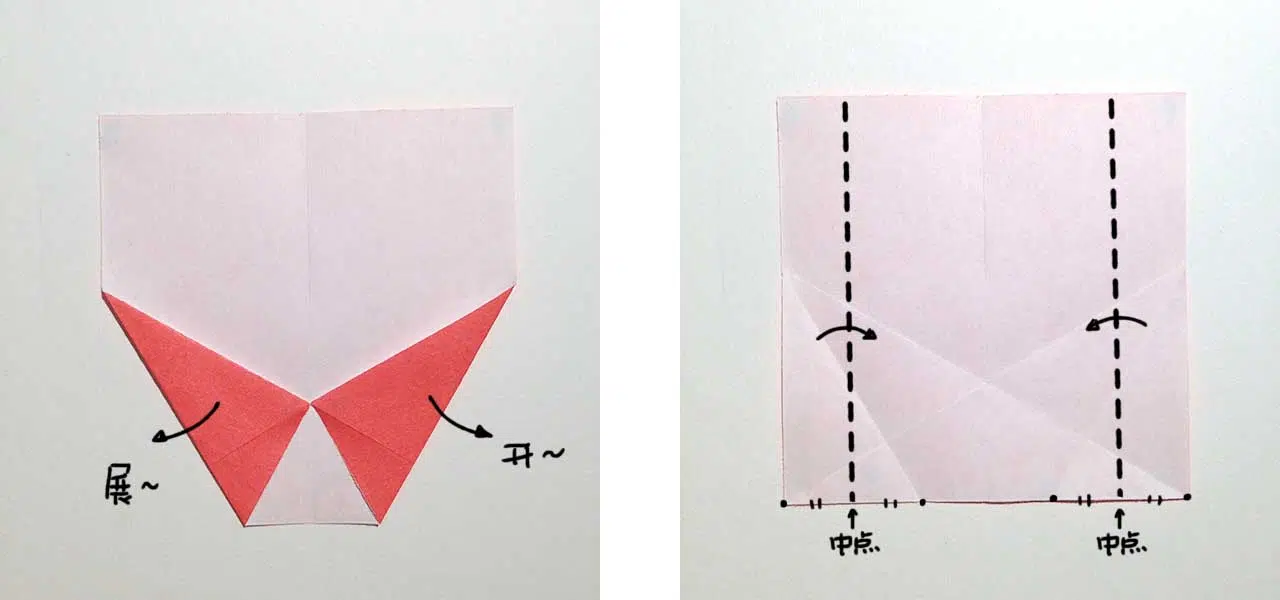 展~
开~
中点
中点